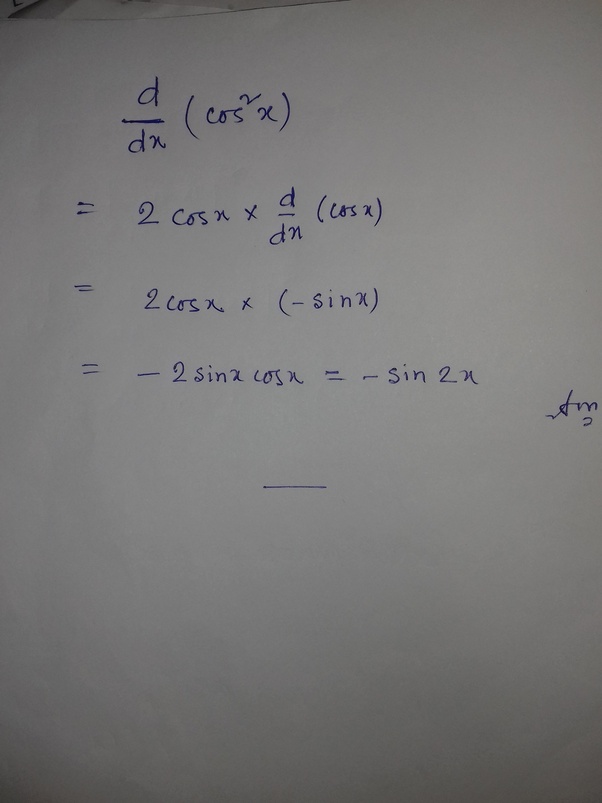 d/dx (cos²x)
= 2 cosx × d/dx (cosx)
= 2cosx × (-sinx)
= - 2sinx cosx = - sin 2x